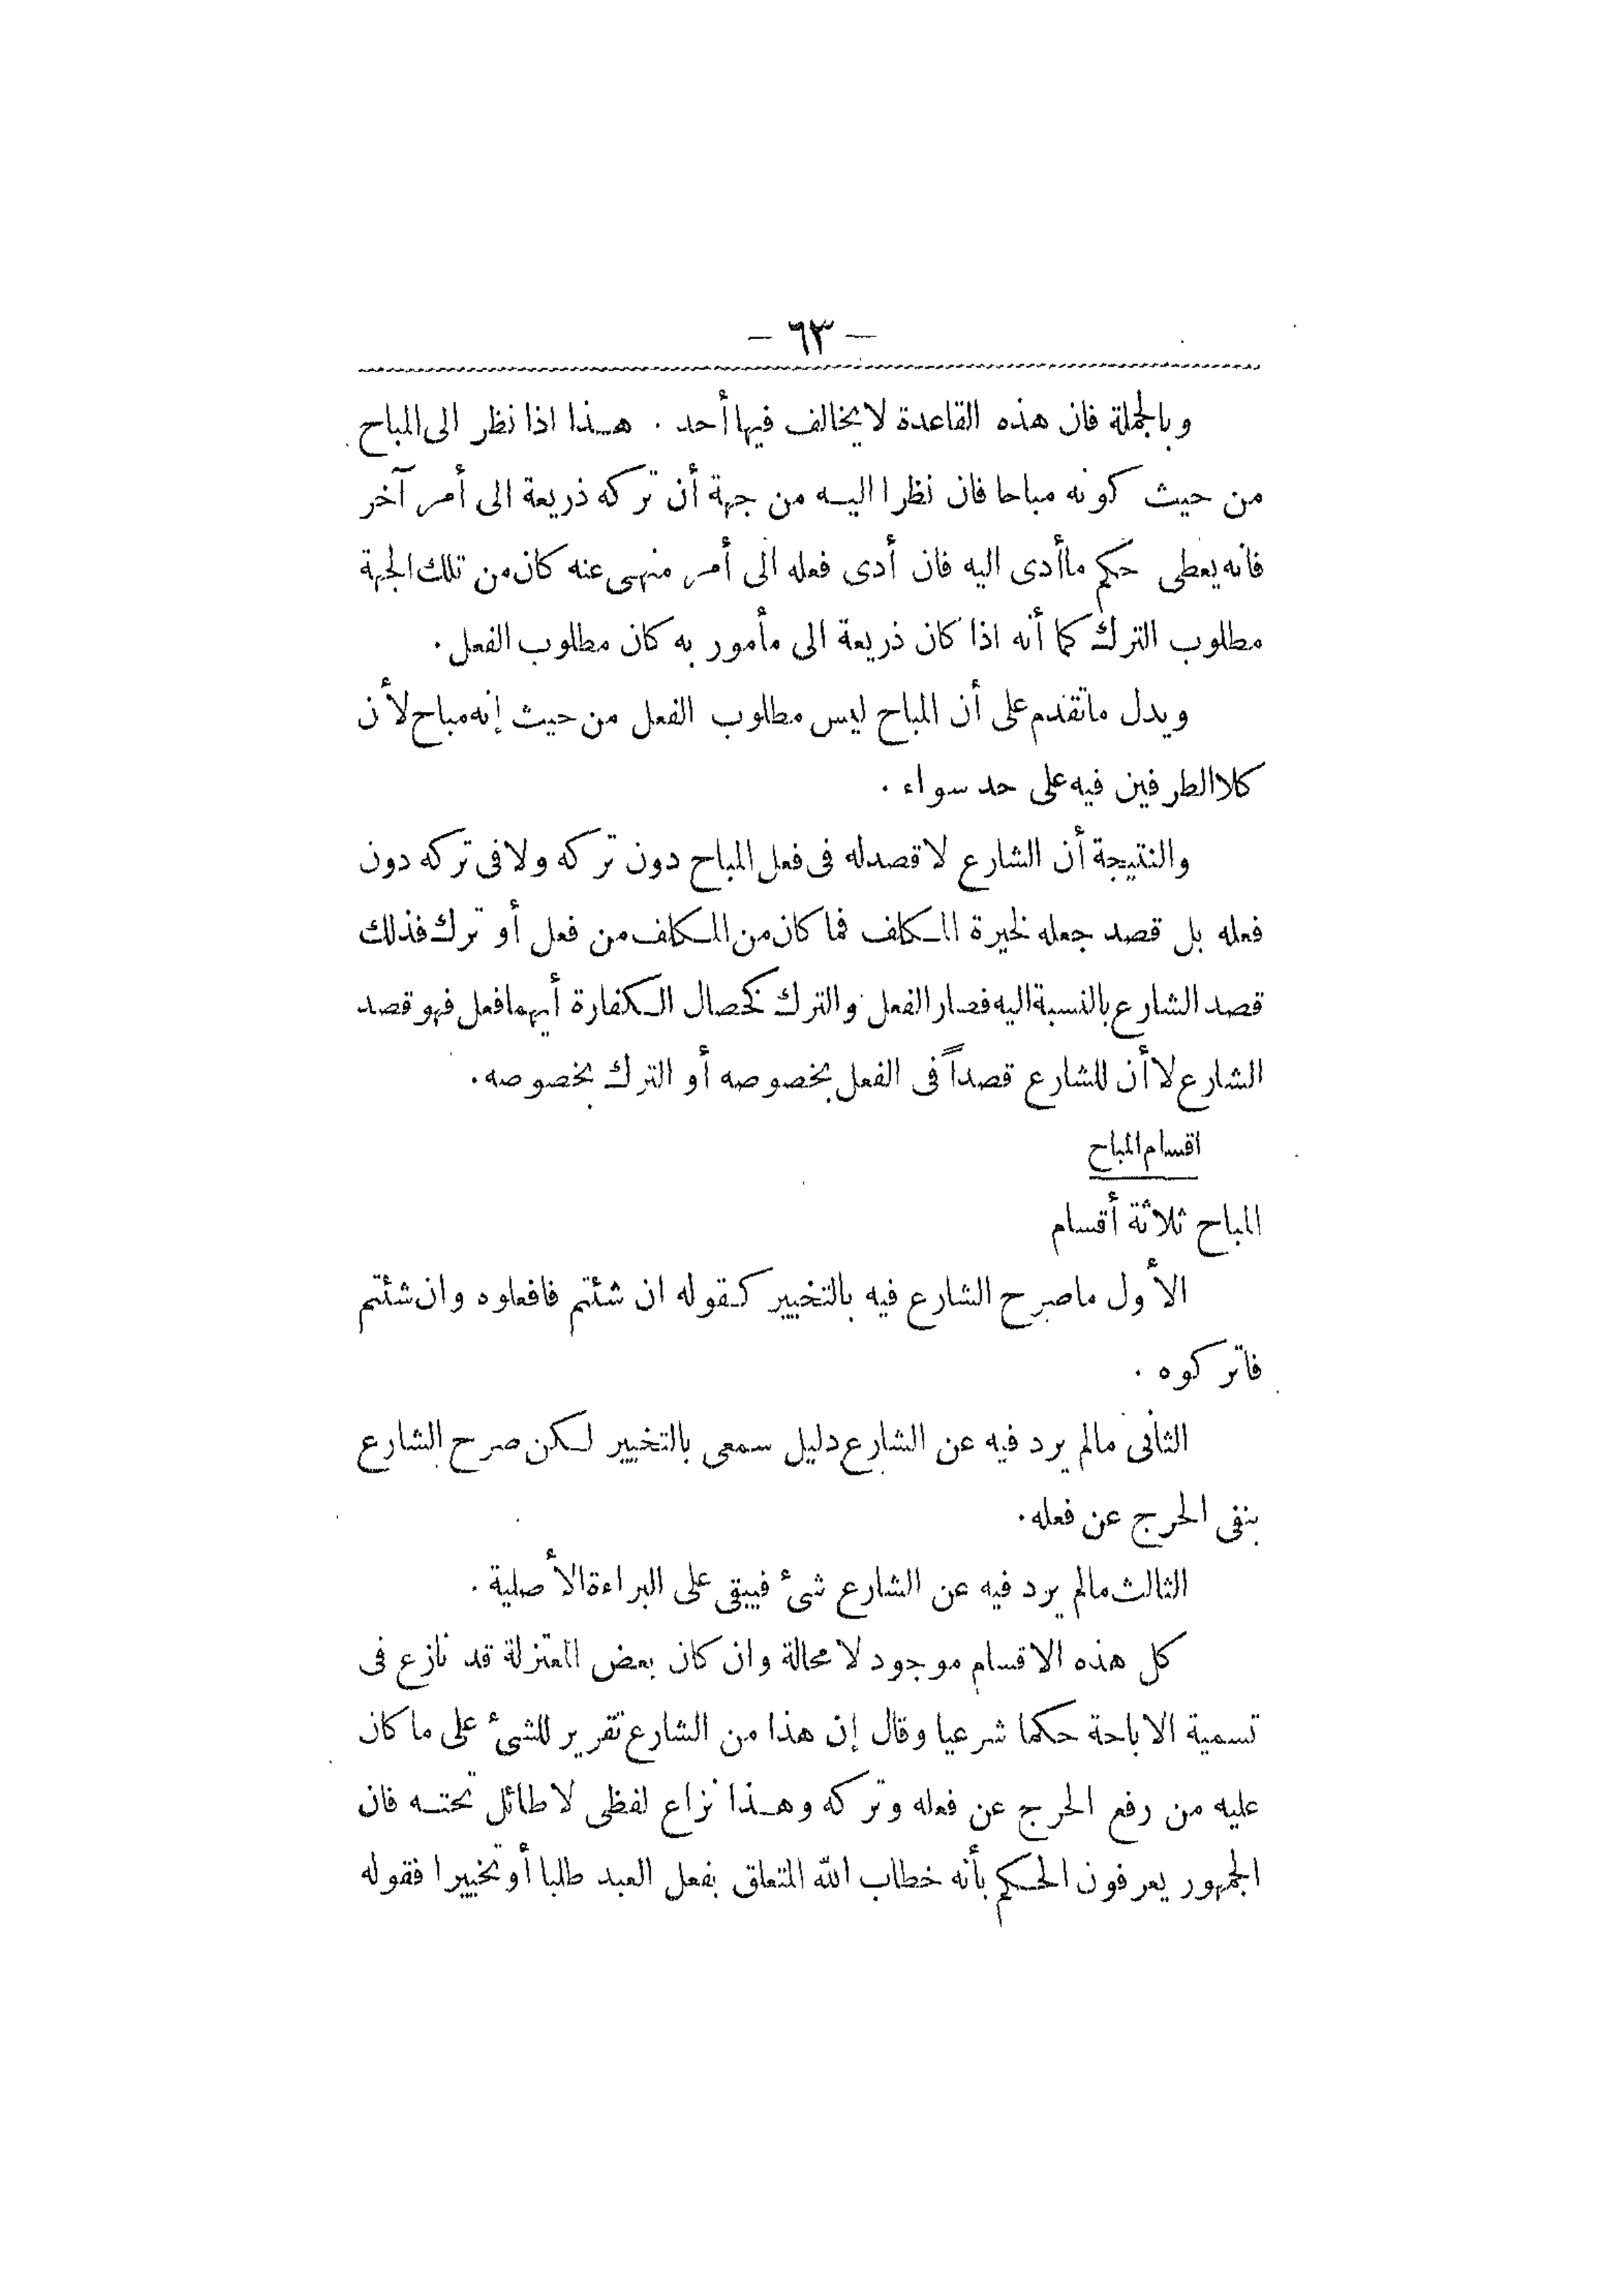 — ٦٣ —
وبالجملة فان هذه القاعدة لا يخالف فيها أحد . هذا اذا نظر الى المباح
من حيث كونه مباحا فان نظرا اليه من جهة أن تركه ذريعة الى أمر آخر
فانه يعطى حكم ما أدى اليه فان أدى فعله الى أمر منهى عنه كان من تلك الجهة
مطلوب الترك كما أنه اذا كان ذريعة الى مأمور به كان مطلوب الفعل .
ويدل ما تقدم على أن المباح ليس مطلوب الفعل من حيث إنه مباح لأن
كلا الطرفين فيه على حد سواء .
والنتيجة أن الشارع لا قصد له فى فعل المباح دون تركه ولا فى تركه دون
فعله بل قصد جعله لخيرة المكلف فما كان من المكلف من فعل أو ترك فذلك
قصد الشارع بالنسبة اليه فصار الفعل والترك كخصال الكفارة أيهما فعل فهو قصد
الشارع لا أن للشارع قصداً فى الفعل بخصوصه أو الترك بخصوصه .
اقسام المباح
المباح ثلاثة أقسام
الأول ما صرح الشارع فيه بالتخيير كقوله ان شئتم فافعلوه وان شئتم
فاتركوه .
الثانى مالم يرد فيه عن الشارع دليل سمعى بالتخيير لكن صرح الشارع
بنفى الحرج عن فعله .
الثالث مالم يرد فيه عن الشارع شئ فيبقى على البراءة الأصلية .
كل هذه الاقسام موجود لا محالة وان كان بعض المعتزلة قد نازع فى
تسمية الاباحة حكما شرعيا وقال إن هذا من الشارع تقرير للشئ على ما كان
عليه من رفع الحرج عن فعله وتركه وهذا نزاع لفظى لا طائل تحته فان
الجمهور يعرفون الحكم بأنه خطاب الله المتعلق بفعل العبد طلبا أو تخييرا فقوله